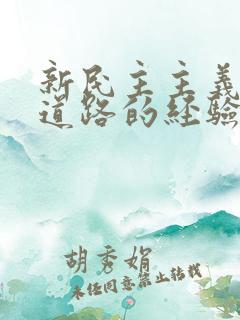 新民主主义
道路的经验
胡秀娟
未经同意禁止转载